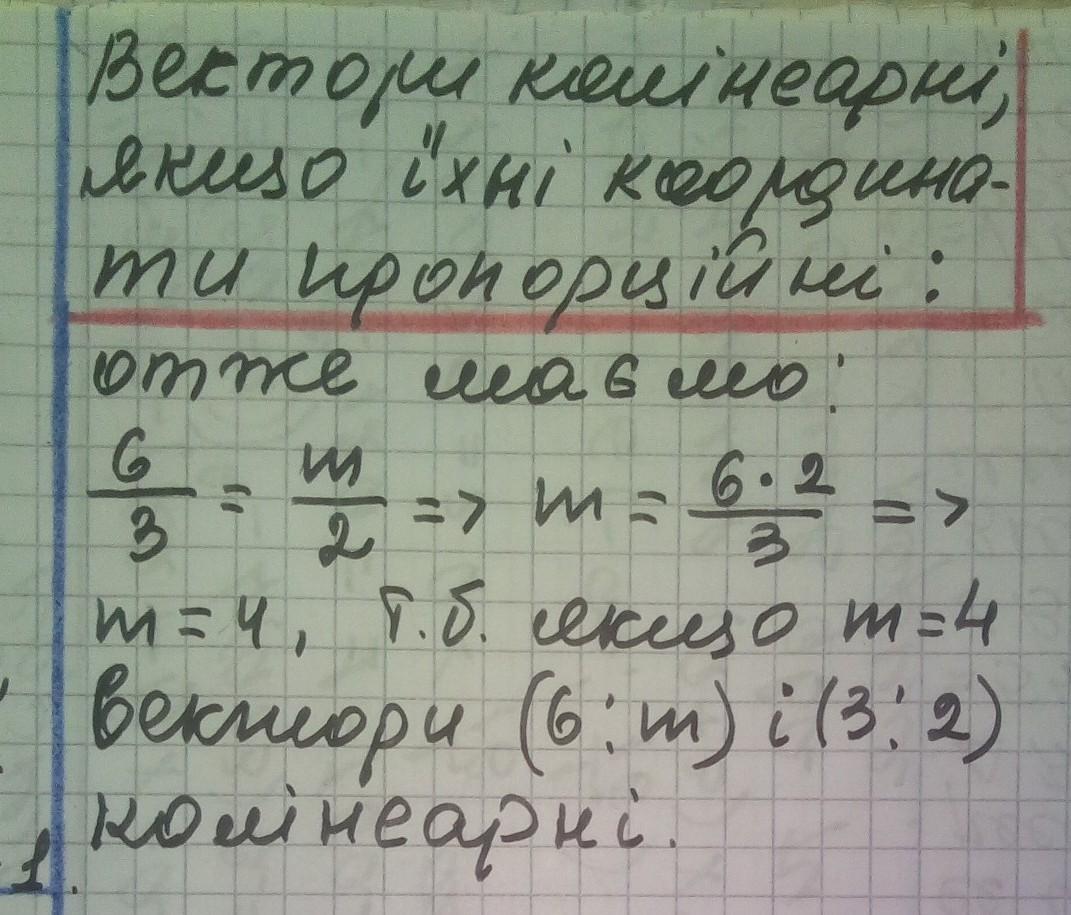 Вектори колінеарні,
якщо їхні координа-
ти пропорційні:
отже маємо:
6/3 = m/2 => m = 6·2/3 =>
m = 4, т.б. якщо m = 4
вектори (6; m) і (3; 2)
колінеарні.
1.